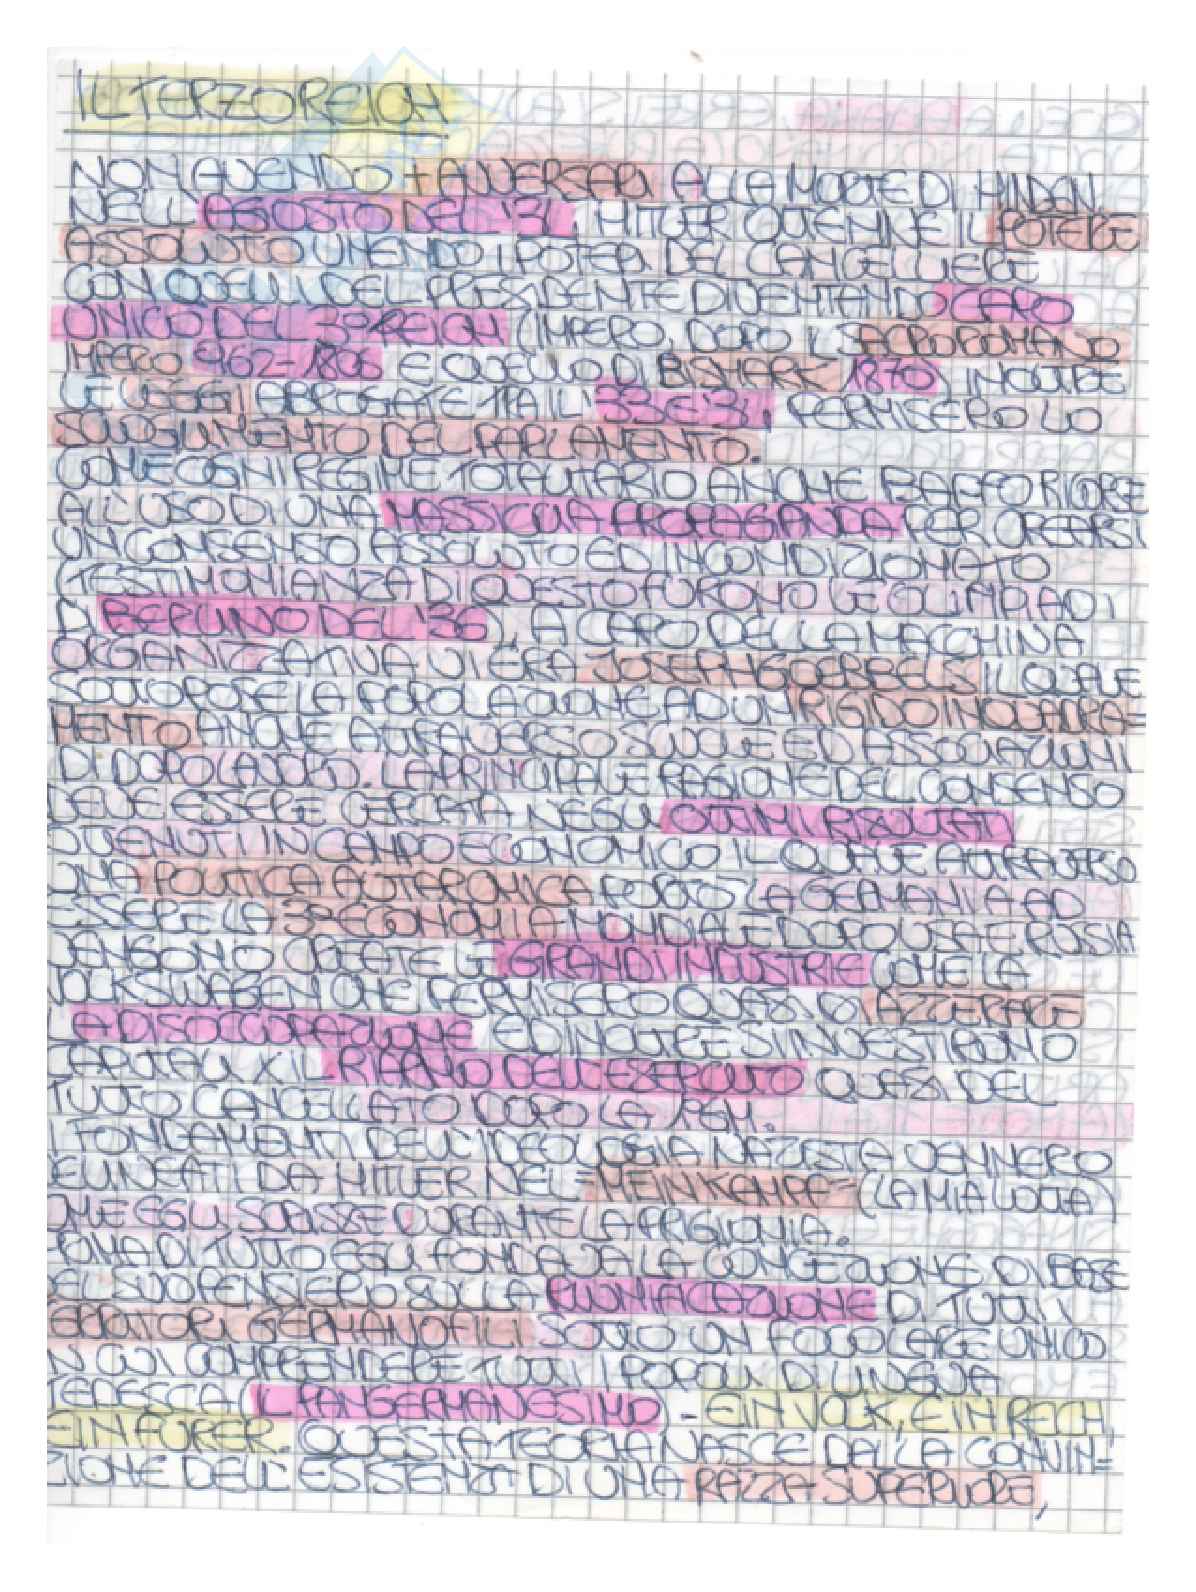 IL TERZO REICH
NON AVENDO + AVVERSARI ALLA MORTE DI HINDEN.
NELL'AGOSTO DEL '34 HITLER OTTENNE IL POTERE
ASSOLUTO UNENDO I POTERI DEL CANCELLIERE
CON QUELLI DEL PRESIDENTE DIVENTANDO CAPO
UNICO DEL 3° REICH (IMPERO, DOPO IL SACRO ROMANO
IMPERO 962-1806 E QUELLO DI BISMARK 1870) INOLTRE
LE LEGGI ABROGATE TRA IL '33 E '34 PERMISERO LO
SCIOGLIMENTO DEL PARLAMENTO.
COME OGNI REGIME TOTALITARIO ANCHE
ALL'USO DI UNA MASSICCIA PROPAGANDA PER CREARSI
UN CONSENSO ASSOLUTO ED INCONDIZIONATO
(TESTIMONIANZA DI QUESTO FURONO LE OLIMPIADI
DI BERLINO DEL '36). A CAPO DELLA MACCHINA
ORGANIZZATIVA VI ERA JOSEPH GOEBBELS IL QUALE
SOTTOPOSE LA POPOLAZIONE AD UN RIGIDO INQUADRA=
MENTO ANCHE ATTRAVERSO SCUOLE ED ASSOCIAZIONI
DI DOPOLAVORO. LA PRINCIPALE RAGIONE DEL CONSENSO
DEVE ESSERE CERCATA NEGLI OTTIMI RISULTATI
OTTENUTI IN CAMPO ECONOMICO IL QUALE ATTRAVERSO
UNA POLITICA AUTARCHICA PORTÒ LA GERMANIA AD
ESSERE LA 3° ECONOMIA MONDIALE DOPO USA E RUSSIA
VENGONO CREATE LE GRANDI INDUSTRIE COME LA
VOLKSWAGEN CHE PERMISERO QUASI DI AZZERARE
LA DISOCCUPAZIONE ED INOLTRE SI INVESTIRONO
CAPITALI X IL RIARMO DELL'ESERCITO QUASI DEL
TUTTO CANCELLATO DOPO LA 1°GM.
I FONDAMENTI DELL'IDEOLOGIA NAZISTA VENNERO
DELINEATI DA HITLER NEL "MEIN KAMPF" (LA MIA LOTTA)
CHE EGLI SCRISSE DURANTE LA PRIGIONIA.
PRIMA DI TUTTO EGLI FONDAVA LA CONCEZIONE DI BASE
DEL SUO PENSIERO SULLA RIUNIFICAZIONE DI TUTTI I
TERRITORI GERMANOFILI SOTTO UN FOCOLARE UNICO
IN CUI COMPRENDERE TUTTI I POPOLI DI LINGUA
TEDESCA (IL PANGERMANESIMO) - EIN VOLK, EIN REICH,
EIN FÜRER. QUESTA TEORIA NASCE DALLA CONVIN=
ZIONE DELL'ESISTENZA DI UNA RAZZA SUPERIORE,